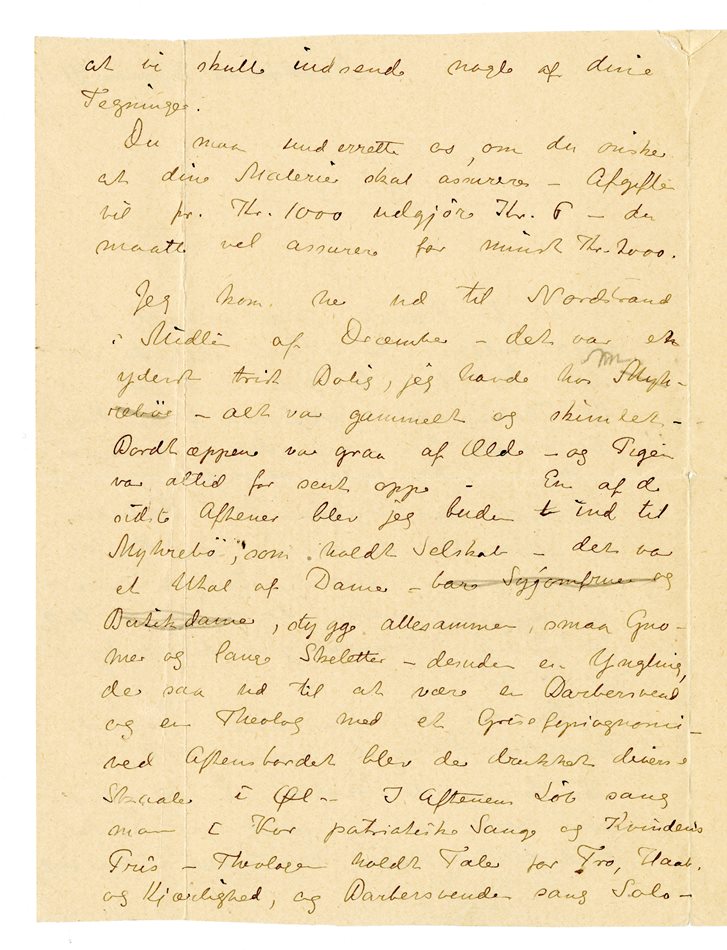 at vi skulle indsende nogle af dine
Tegninger.
Du maa underrette os, om du ønsker
at dine Malerier skal assureres – Afgiften
vil pr. Kr. 1000 udgjöre Kr. 6 – du
maatte vel assurere for mindst Kr. 2000.
Jeg kom her ud til Nordstrand
i Midten af December – det var en
yderst trist Bolig, jeg havde hos Myh-
reböe – alt var gammelt og skimlet –
Bordtæppene var graa af Ælde – og Pigen
var altid for sent oppe – En af de
sidste Aftener blev jeg buden t ind til
Myhrebö, som holdt Selskab – det var
et Utal af Damer – bare Syjomfruer og
Butikdamer, stygge allesammen, smaa Gno-
mer og lange Skeletter – desuden en Yngling,
der saa ud til at være en Barbersvend
og en Theolog med et Grisefysiognomi –
ved Aftensbordet blev der drukket diverse
Skaaler i Øl – I Aftenens Löb sang
man i Kor patriotiske Sange og Kvindens
Pris – Theologen holdt Tale for Tro, Haab
og Kjærlighed, og Barbersvenden sang Solo –